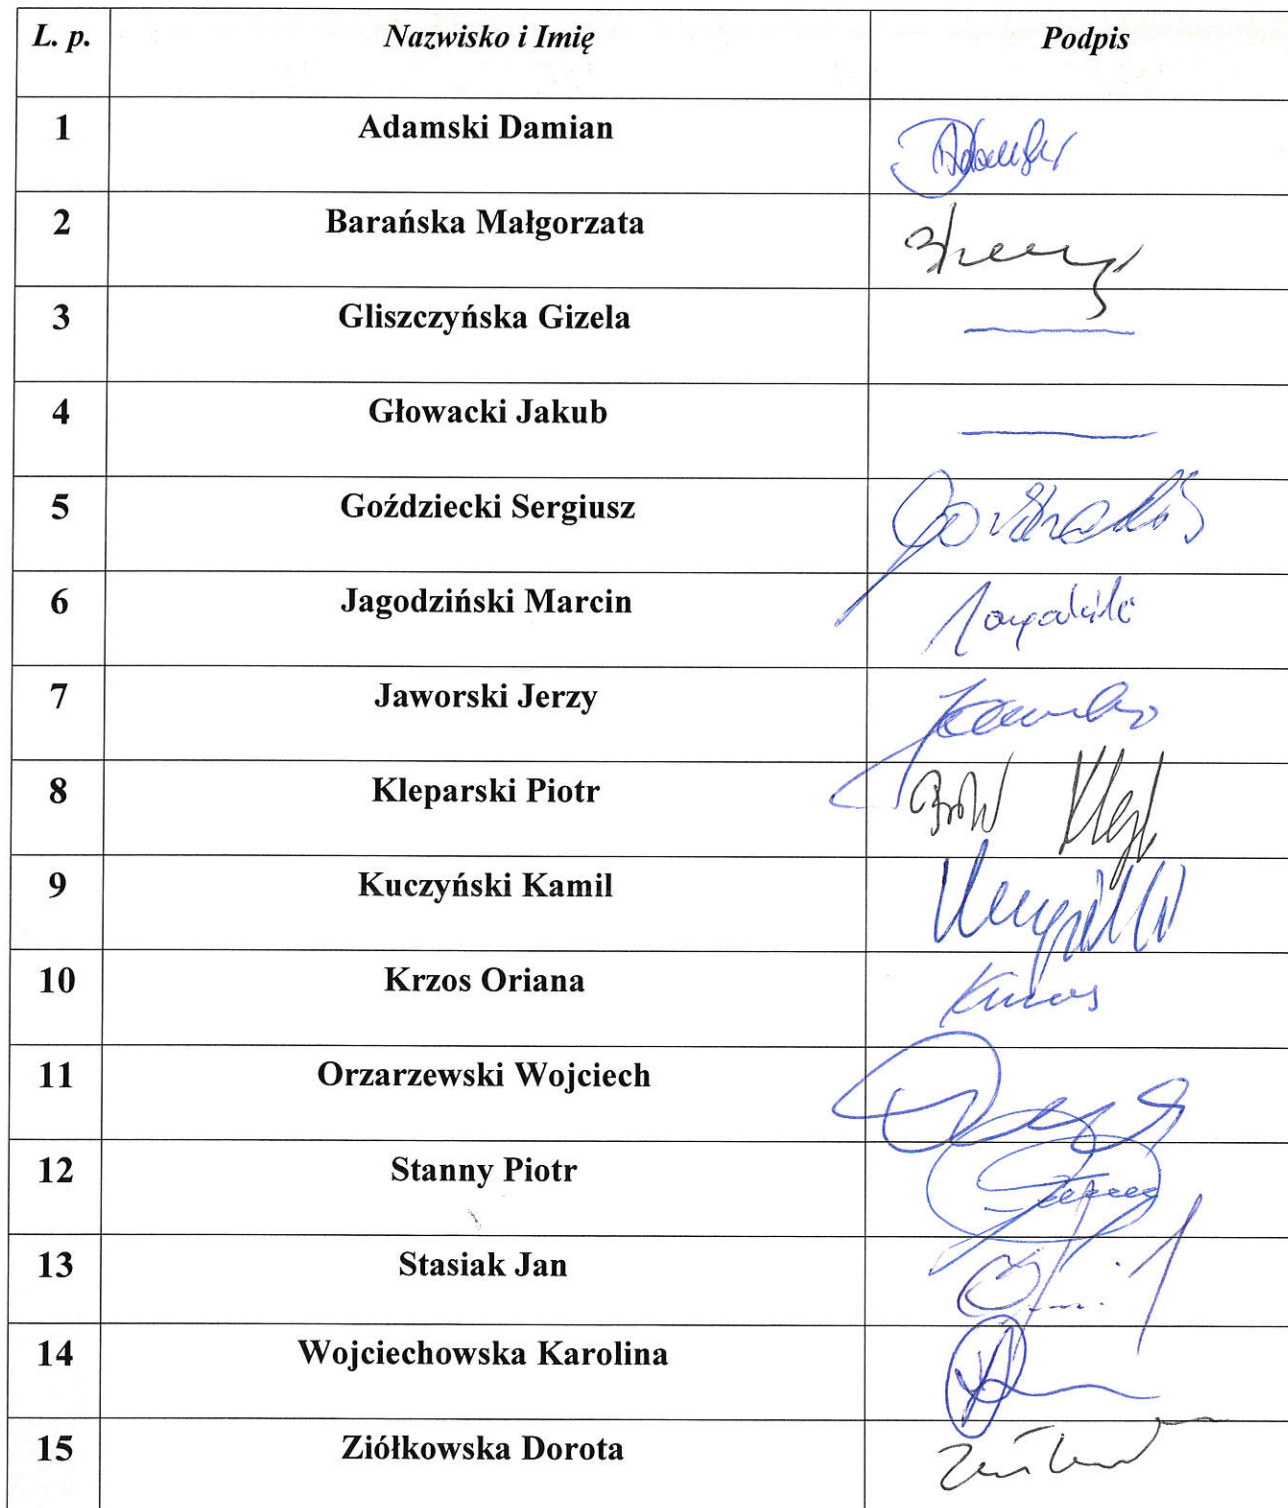 L. p. Nazwisko i Imię Podpis
1 Adamski Damian
2 Barańska Małgorzata
3 Gliszczyńska Gizela
4 Głowacki Jakub
5 Goździecki Sergiusz
6 Jagodziński Marcin
7 Jaworski Jerzy
8 Kleparski Piotr
9 Kuczyński Kamil
10 Krzos Oriana
11 Orzarzewski Wojciech
12 Stanny Piotr
13 Stasiak Jan
14 Wojciechowska Karolina
15 Ziółkowska Dorota